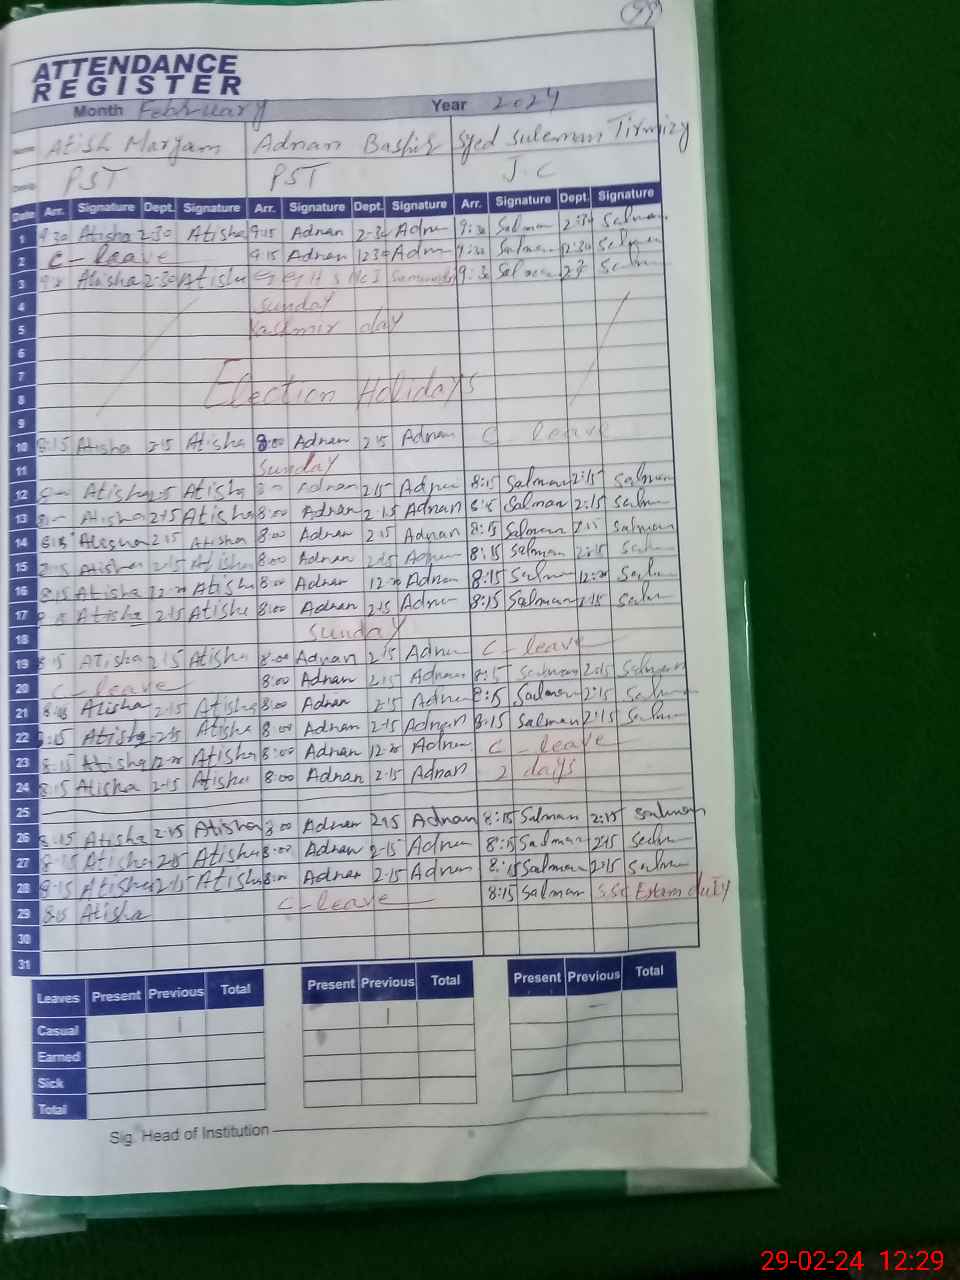 ATTENDANCE
REGISTER
Month February Year 2024
Name Atish Maryam Adnan Bashir Syed Suleman Tirmizy
PST PST J.C
Date Arr. Signature Dept. Signature Arr. Signature Dept. Signature Arr. Signature Dept. Signature
1 9:30 Atisha 2-30 Atisha 9:15 Adnan 2-30 Adnan 9:30 Salman 2:30 Salman
2 C-leave 9:15 Adnan 12:30 Adnan 9:30 Salman 12:30 Salman
3 Atisha 2-30 Atisha 9:30 Salman Salman
4 Sunday
5 Kashmir day
6
7
8 Election Holidays
9
10 8:15 Atisha 2:15 Atisha 8:00 Adnan 2:15 Adnan C leave
11 Sunday
12 Atisha 2:15 Atisha Adnan 2:15 Adnan 8:15 Salman 2:15 Salman
13 Atisha 2:15 Atisha 8:00 Adnan 2:15 Adnan 8:15 Salman 2:15 Salman
14 8:15 Atisha 2:15 Atisha 8:00 Adnan 2:15 Adnan 8:15 Salman 2:15 Salman
15 8:15 Atisha 2:15 Atisha 8:00 Adnan 2:15 Adnan 8:15 Salman 2:15 Salman
16 8:15 Atisha Atisha 8:00 Adnan Adnan 8:15 Salman Salman
17 Atisha 2:15 Atisha 8:00 Adnan 2:15 Adnan 8:15 Salman 2:15 Salman
18 Sunday
19 8:15 Atisha 2:15 Atisha 8:00 Adnan 2:15 Adnan C-leave
20 C-leave 8:00 Adnan 2:15 Adnan 8:15 Salman 2:15 Salman
21 Atisha 2:15 Atisha 8:00 Adnan 2:15 Adnan 8:15 Salman 2:15 Salman
22 8:15 Atisha 2:15 Atisha 8:00 Adnan 2:15 Adnan 8:15 Salman 2:15 Salman
23 8:15 Atisha Atisha 8:00 Adnan Adnan C-leave
24 8:15 Atisha 2:15 Atisha 8:00 Adnan 2:15 Adnan 2 days
25
26 8:15 Atisha 2:15 Atisha 8:00 Adnan 2:15 Adnan 8:15 Salman 2:15 Salman
27 8:15 Atisha 2:15 Atisha 8:00 Adnan 2:15 Adnan 8:15 Salman 2:15 Salman
28 8:15 Atisha 2:15 Atisha 8:00 Adnan 2:15 Adnan 8:15 Salman 2:15 Salman
29 8:15 Atisha C-leave 8:15 Salman SSC Exam duty
30
31
Leaves Present Previous Total Present Previous Total Present Previous Total
Casual 1 1 –
Earned
Sick
Total
Sig. Head of Institution
29-02-24 12:29